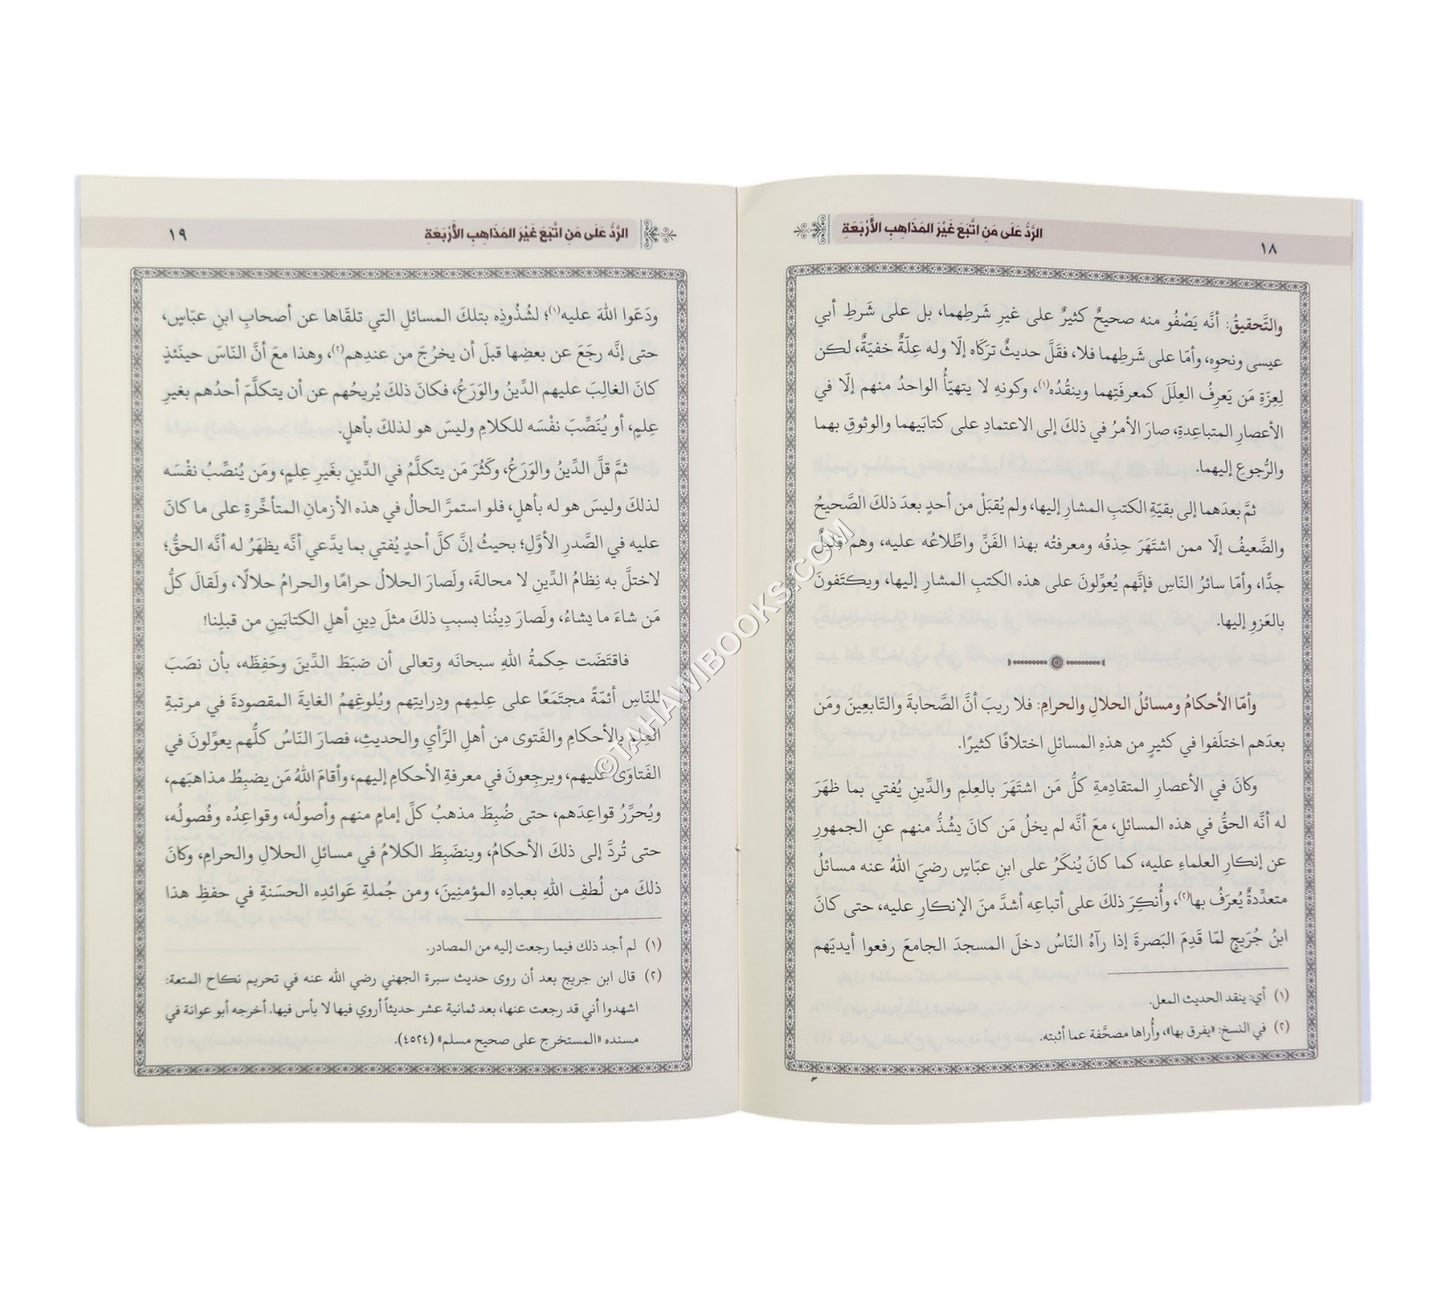 الرَّدُّ عَلَى مَنِ اتَّبَعَ غَيْرَ المَذَاهِبِ الأَرْبَعَةِ
١٨
والتَّحقيقُ: أنَّه يَصْفُو منه صحيحٌ كثيرٌ على غيرِ شَرطِهما، بل على شَرطِ أبي
عيسى ونحوِه، وأمَّا على شَرطِهما فلا، فقَلَّ حديثٌ تركَاه إلَّا وله عِلَةٌ خفيّةٌ، لكن
لِعِزَةِ مَن يَعرِفُ العِلَلَ كمعرفَتِهما وينقُدُه(١)، وكونِهِ لا يتهيّأُ الواحدُ منهم إلَّا في
الأعصارِ المتباعِدةِ، صارَ الأمرُ في ذلكَ إلى الاعتمادِ على كتابَيهما والوثوقِ بهما
والرُّجوعِ إليهما.
ثمَّ بعدَهما إلى بقيَّةِ الكتبِ المشارِ إليها، ولم يُقبَلْ من أحدٍ بعدَ ذلكَ الصَّحيحُ
والضَّعيفُ إلّا ممن اشتَهَرَ حِذقُه ومعرفتُه بهذا الفَنِّ واطِّلاعُه عليه، وهم قليلٌ
جدًّا، وأمّا سائرُ النّاسِ فإنَّهم يُعوِّلونَ على هذه الكتبِ المشارِ إليها، ويكتَفونَ
بالعَزوِ إليها.
وأمّا الأحكامُ ومسائلُ الحلالِ والحرامِ: فلا ريبَ أنَّ الصَّحابةَ والتَّابعِينَ ومَن
بعدَهم اختلَفوا في كثيرٍ من هذهِ المسائلِ اختلافًا كثيرًا.
وكانَ في الأعصارِ المتقادِمةِ كلُّ مَن اشتَهَرَ بالعِلمِ والدِّينِ يُفتي بما ظهَرَ
له أنَّه الحقُّ في هذه المسائلِ، معَ أنَّه لم يخلُ مَن كانَ يشُذُّ منهم عنِ الجمهورِ
عن إنكارِ العلماءِ عليه، كما كانَ يُنكَرُ على ابنِ عبّاسٍ رضيَ اللهُ عنه مسائلُ
متعدِّدةٌ يُعرَفُ بها(٢)، وأُنكِرَ ذلكَ على أتباعِه أشدَّ منَ الإنكارِ عليه، حتى كانَ
ابنُ جُرَيجٍ لمّا قدِمَ البَصرةَ إذا رآهُ النّاسُ دخلَ المسجدَ الجامعَ رفعوا أيديَهم
(١) أي: ينقد الحديث المعل.
(٢) في النسخ: «يفرق بها»، وأُراها مصحَّفة عما أثبته.
الرَّدُّ عَلَى مَنِ اتَّبَعَ غَيْرَ المَذَاهِبِ الأَرْبَعَةِ
١٩
ودَعَوا اللهَ عليه(١)؛ لشُذُوذِه بتلكَ المسائلِ التي تلقّاها عن أصحابِ ابنِ عبّاسٍ،
حتى إنَّه رجَعَ عن بعضِها قبلَ أن يخرُجَ من عندِهم(٢)، وهذا معَ أنَّ النّاسَ حينَئذٍ
كانَ الغالِبَ عليهم الدِّينُ والوَرَعُ، فكانَ ذلكَ يُريحُهم عن أن يتكلَّمَ أحدُهم بغيرِ
عِلمٍ، أو يُنَصِّبَ نفْسَه للكلامِ وليسَ هو لذلكَ بأهلٍ.
ثمَّ قلَّ الدِّينُ والوَرَعُ، وكَثُرَ مَن يتكلَّمُ في الدِّينِ بغَيرِ عِلمٍ، ومَن يُنصِّبُ نفْسَه
لذلكَ وليسَ هو له بأهلٍ، فلو استمرَّ الحالُ في هذه الأزمانِ المتأخِّرةِ على ما كانَ
عليه في الصَّدرِ الأوَّلِ؛ بحيثُ إنَّ كلَّ أحدٍ يُفتي بما يدَّعي أنَّه يظهَرُ له أنَّه الحقُّ؛
لاختلَّ به نِظامُ الدِّينِ لا محالةَ، ولَصارَ الحلالُ حرامًا والحرامُ حلالًا، ولَقالَ كلُّ
مَن شاءَ ما يشاءُ، ولَصارَ دِينُنا بسببِ ذلكَ مثلَ دِينِ أهلِ الكتابَينِ من قبلِنا!
فاقتَضَت حِكمةُ اللهِ سبحانَه وتعالى أن ضبَطَ الدِّينَ وحَفِظَه، بأن نصَبَ
للنّاسِ أئمّةً مجتَمَعًا على عِلمِهم ودِرايتِهم وبُلوغِهمُ الغايةَ المقصودةَ في مرتبةِ
العِلمِ بالأحكامِ والفَتوى من أهلِ الرَّأيِ والحديثِ، فصارَ النّاسُ كلُّهم يعوِّلونَ في
الفَتاوَى عليهم، ويرجِعونَ في معرفةِ الأحكامِ إليهم، وأقامَ اللهُ مَن يضبِطُ مذاهبَهم،
ويُحرِّرُ قواعدَهم، حتى ضُبِطَ مذهبُ كلِّ إمامٍ منهم وأصولُه، وقواعِدُه وفُصولُه،
حتى تُردَّ إلى ذلكَ الأحكامُ، وينضَبِطَ الكلامُ في مسائلِ الحلالِ والحرامِ، وكانَ
ذلكَ من لُطفِ اللهِ بعبادِه المؤمنِينَ، ومن جُملةِ عَوائدِه الحسَنةِ في حفظِ هذا
(١) لم أجد ذلك فيما رجعت إليه من المصادر.
(٢) قال ابن جريج بعد أن روى حديث سبرة الجهني رضي الله عنه في تحريم نكاح المتعة:
اشهدوا أني قد رجعت عنها، بعد ثمانية عشر حديثاً أروي فيها لا بأس فيها. أخرجه أبو عوانة في
مسنده «المستخرج على صحيح مسلم» (٤٥٢٤).
©TAHAWIBOOKS.COM